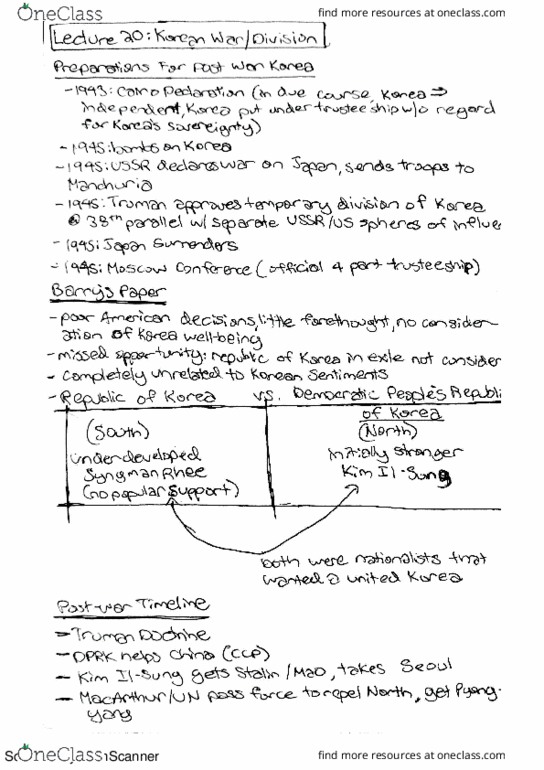 OneClass
find more resources at oneclass.com
Lecture 20: Korean War/Division
Preparations For Post War Korea
- 1943: Cairo Declaration (in due course, Korea ⇒
independent, Korea put under trusteeship w/o regard
for Korea's sovereignty)
- 1945: bombs on Korea
- 1945: USSR declares war on Japan, sends troops to
Manchuria
- 1945: Truman approves temporary division of Korea
@ 38th parallel w/ separate USSR/US spheres of influe
- 1945: Japan Surrenders
- 1945: Moscow Conference (official 4 part trusteeship)
Barry's Paper
- poor American decisions, little forethought, no consider-
ation of Korea well-being
- missed opportunity: republic of Korea in exile not consider
- completely unrelated to Korean Sentiments
- Republic of Korea vs. Democratic People's Republi
of Korea
(South)
(North)
underdeveloped
initially stronger
Syngman Rhee
Kim Il-Sung
(no popular support)
both were nationalists that
wanted a united Korea
Post-war Timeline
- Truman Doctrine
- DPRK helps China (CCP)
- Kim Il-Sung gets Stalin/Mao, takes Seoul
- MacArthur/UN pass force to repel North, get Pyong-
yang
OneClass
Scanner
find more resources at oneclass.com